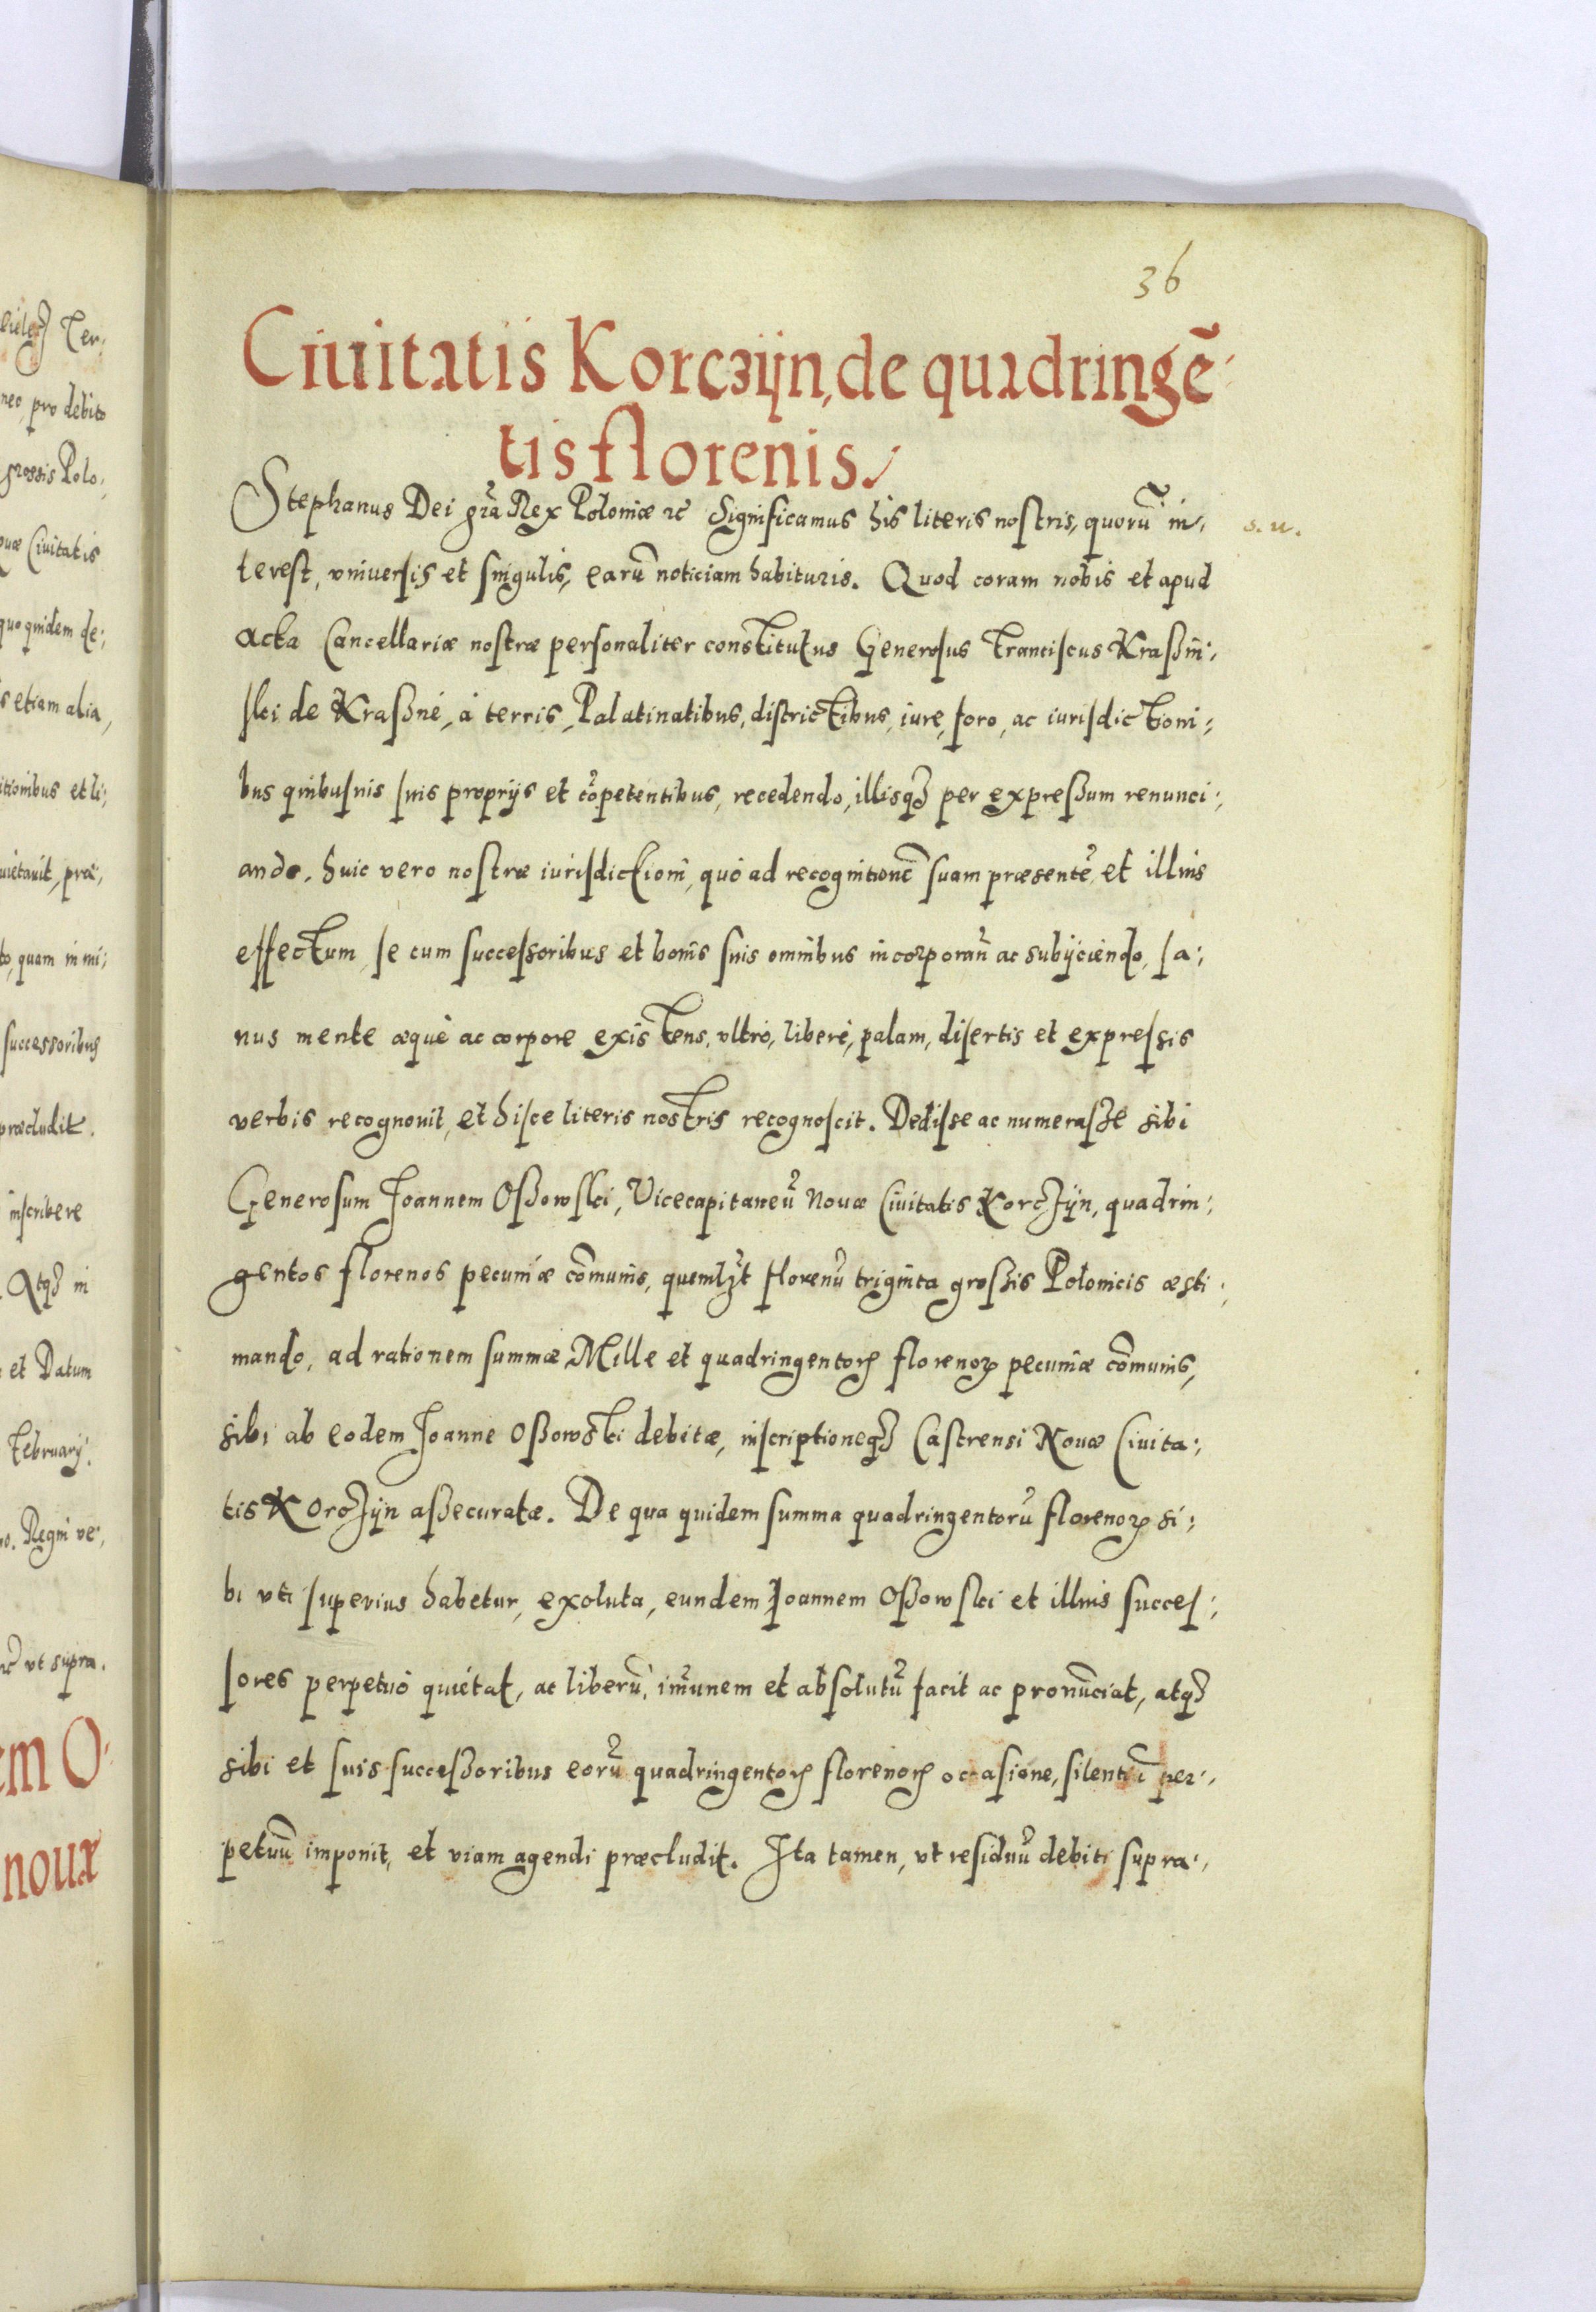 36
Ciuitatis Korczÿn, de quadringē
tis florenis.
Stephanus Dei gr̃a Rex Poloniæ ꝛc̃ Significamus his literis nostris, quorũ in-
s. u.
terest, vniuersis et singulis, earũ noticiam habituris. Quod coram nobis et apud
acta Cancellariæ nostræ personaliter constitutus Generosus Franciscus Kraßin:
ski de Kraßne, à terris, Palatinatibus, districtibus, iure, foro, ac iurisdictioni:
bus quibusuis suis proprijs et cõpetentibus, recedendo, illisqꝫ per expreßum renunci:
ando, huic vero nostræ iurisdictioni, quò ad recognitionẽ suam præsentẽ, et illius
effectum, se cum successoribus et bonis suis omnibus incorporañ ac subijciendo, sa:
nus mente æquè ac corpore existens, vltrò, liberè, palam, disertis et expressis
verbis recognouit, et hisce literis nostris recognoscit. Dedisse ac numerasse sibi
Generosum Joannem Oßowski, Vicecapitaneũ Nouæ Ciuitatis Korczÿn, quadrin:
gentos florenos pecuniæ cõmunis, quemlꝫt florenũ triginta großis Polonicis æsti:
mando, ad rationem summæ Mille et quadringentoꝝ florenoꝝ pecuniæ cõmunis,
sibi ab eodem Joanne Oßowski debitæ, inscriptioneqꝫ Castrensi Nouæ Ciuita:
tis Korczÿn aßecuratæ. De qua quidem summa quadringentorũ florenoꝝ si:
bi vti superius habetur, exoluta, eundem Joannem Oßowski et illius succes:
sores perpetuò quietat, ac liberũ, im̃unem et absolutũ facit ac pronũciat, atqꝫ
sibi et suis succeßoribus eorũ quadringentoꝝ florenoꝝ occasione, silentiũ per-
petuũ imponit, et viam agendi præcludit. Ita tamen, vt residuũ debiti supra-